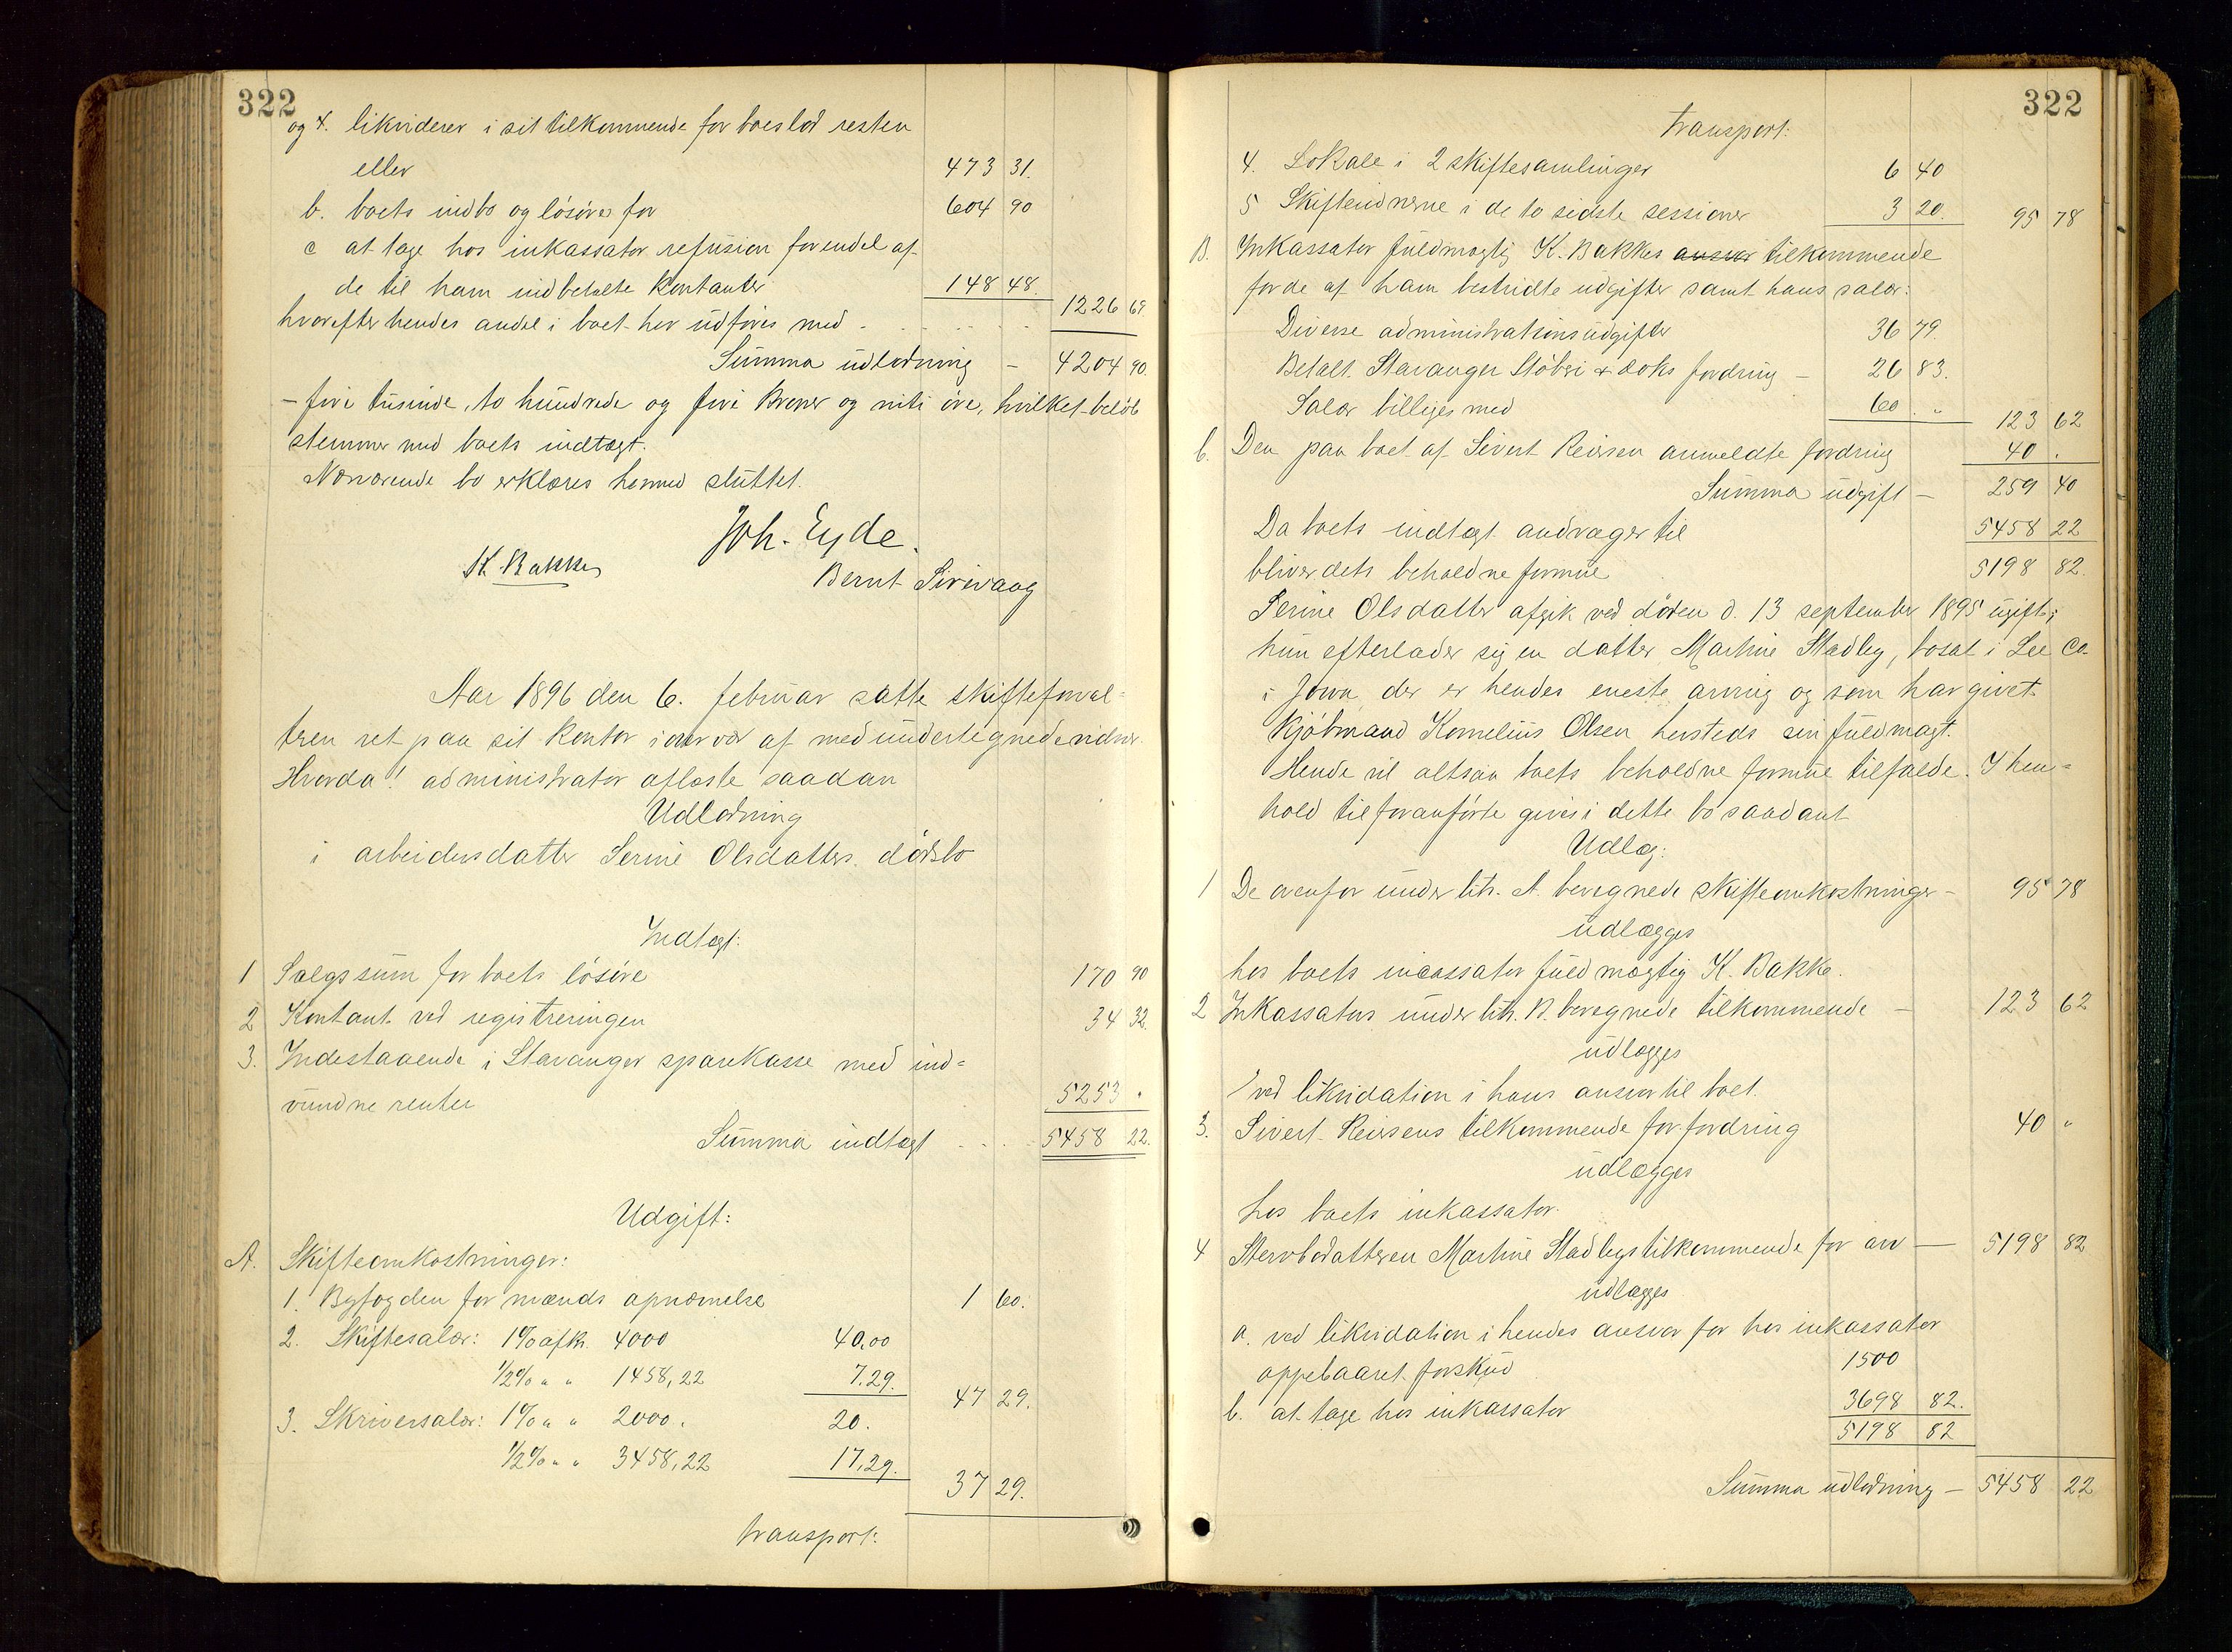 322
og 4. likviderer i sit tilkommende for boeslod resten
eller 473 31.
b. boets indbo og løsøre for 604 90
c at tage hos inkassator refusion for endel af
de til ham indbetalte kontanter 148 48.
hvorefter hendes andel i boet her udføres med - 1226 69
Summa udlodning - 4204 90.
- fire tusinde, to hundrede og fire kroner og niti øre, hvilket beløb
stemmer med boets indtægt.
Nærværende bo erklæres hermed sluttet.
Joh. Eyde.
K. Bakke
Bernt Sirevaag
Aar 1896 den 6. februar satte skifteforval=
teren ret paa sit kontor i overvær af medundertegnede vidner.
Hvorda! administrator aflæste saadan
Udlodning
i arbeidersdatter Serine Olsdatters dødsbo
Indtægt:
1 Salgssum for boets løsøre 170 90
2 Kontant ved registreringen 34 32.
3. Indestaaende i Stavanger sparekasse med ind=
vundne renter 5253 .
Summa indtægt 5458 22.
Udgift:
A. Skifteomkostninger:
1. Byfogden for mænds opnævnelse 1 60.
2. Skiftesalær: 1% af kr. 4000 40.00
1/2% " " 1458,22 7.29. 47 29.
3. Skriversalær: 1% " " 2000. 20.
1/2% " " 3458,22 17,29. 37 29.
transport:
322
transport:
4. Lokale i 2 skiftesamlinger 6 40
5 Skiftevidnerne i de to sidste sessioner 3 20. 95 78
B. Inkassator fuldmægtig K. Bakkes ansvar tilkommende
for de af ham bestridte udgifter samt hans salær:
Diverse administrationsudgifter 36 79.
Betalt Stavanger Støberi & doks fordring - 26 83.
Salær billiges med 60 . " 123 62
C. Den paa boet af Sivert Reiersen anmeldte fordring 40 .
Summa udgift - 259 40
Da boets indtægt andrager til 5458 22
bliver dets beholdne formue 5198 82.
Serine Olsdatter afgik ved døden d. 13 september 1895 ugift;
hun efterlader sig en datter Martine Stadley, bosat i Lee Co.
i Jowa der er hendes eneste arving og som har givet
kjøbmand Kornelius Olsen hersteds sin fuldmagt.
Hende vil altsaa boets beholdne formue tilfalde. I hen=
hold til foranførte gives i dette bo saadant
Udlæg:
1 De ovenfor under litr. A. beregnede skifteomkostninger - 95 78
udlægges
hos boets incassator fuldmægtig K. Bakke.
2 Inkassators under litr. B. beregnede tilkommende - 123 62
udlægges
ved likvidation i hans ansvar til boet.
3. Sivert Reiersens tilkommende for fordring 40 "
udlægges
hos boets inkassator.
4 Stervbodatteren Martine Stadleys tilkommende for arv - 5198 82
udlægges
a. ved likvidation i hendes ansvar for hos inkassator
oppebaaret forskud 1500
b. at tage hos inkassator 3698 82.
5198 82
Summa udlodning - 5458 22